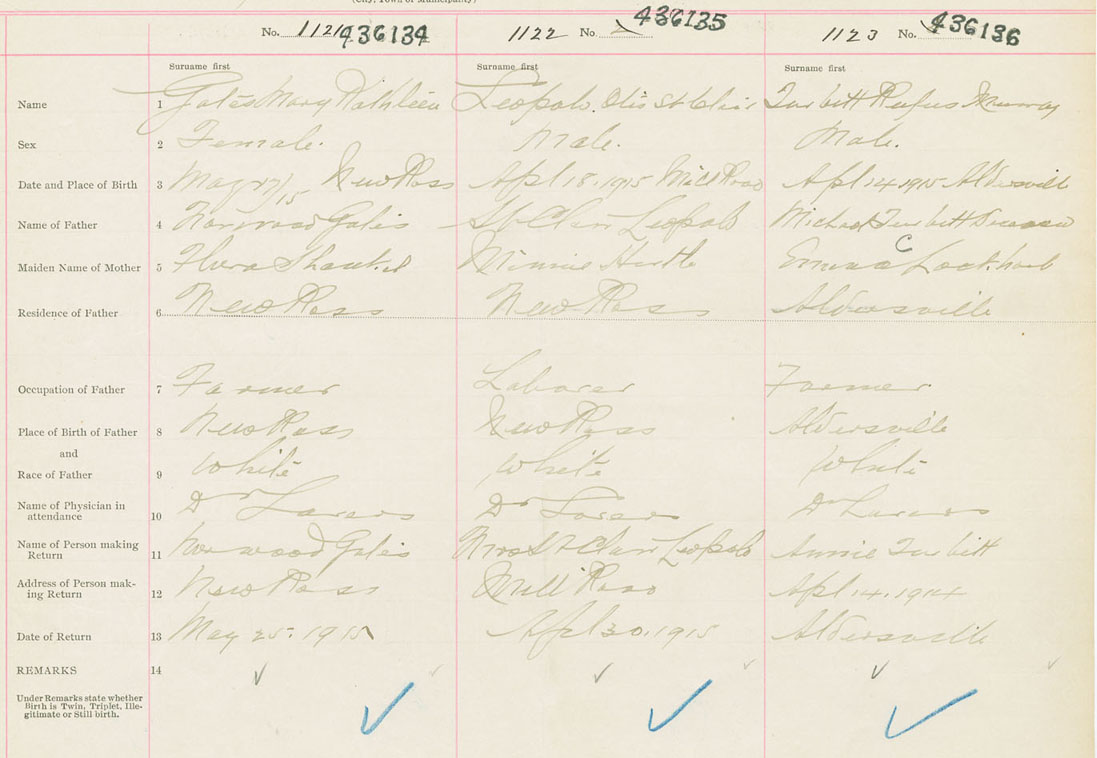 (City, Town or Municipality)
No. 1121 436134 1122 No. 436135 1123 No. 436136
Surname first Surname first Surname first
Name 1 Gates Mary Kathleen Leopold. Otis St Clair Turbitt Rufus Murray
Sex 2 Female. Male. Male.
Date and Place of Birth 3 May 17/15 New Ross Apl 18. 1915 Mill Road Apl 14. 1915 Aldersville
Name of Father 4 Norwood Gates St Clair Leopold Michael Turbitt
Maiden Name of Mother 5 Flora Minnie Hurtle Emma C Lockhart
Residence of Father 6 New Ross New Ross Aldersville
Occupation of Father 7 Farmer Laborer Farmer.
Place of Birth of Father 8 New Ross New Ross Aldersville
and
Race of Father 9 White White White
Name of Physician in
attendance 10 Dr Dr Dr
Name of Person making
Return 11 Norwood Gates Mrs St Clair Leopold Annie Turbitt
Address of Person mak-
ing Return 12 New Ross Mill Road Apl 14. 1914
Date of Return 13 May 25. 1915 Apl 30. 1915 Aldersville
REMARKS 14
Under Remarks state whether
Birth is Twin, Triplet, Ille-
gitimate or Still birth.